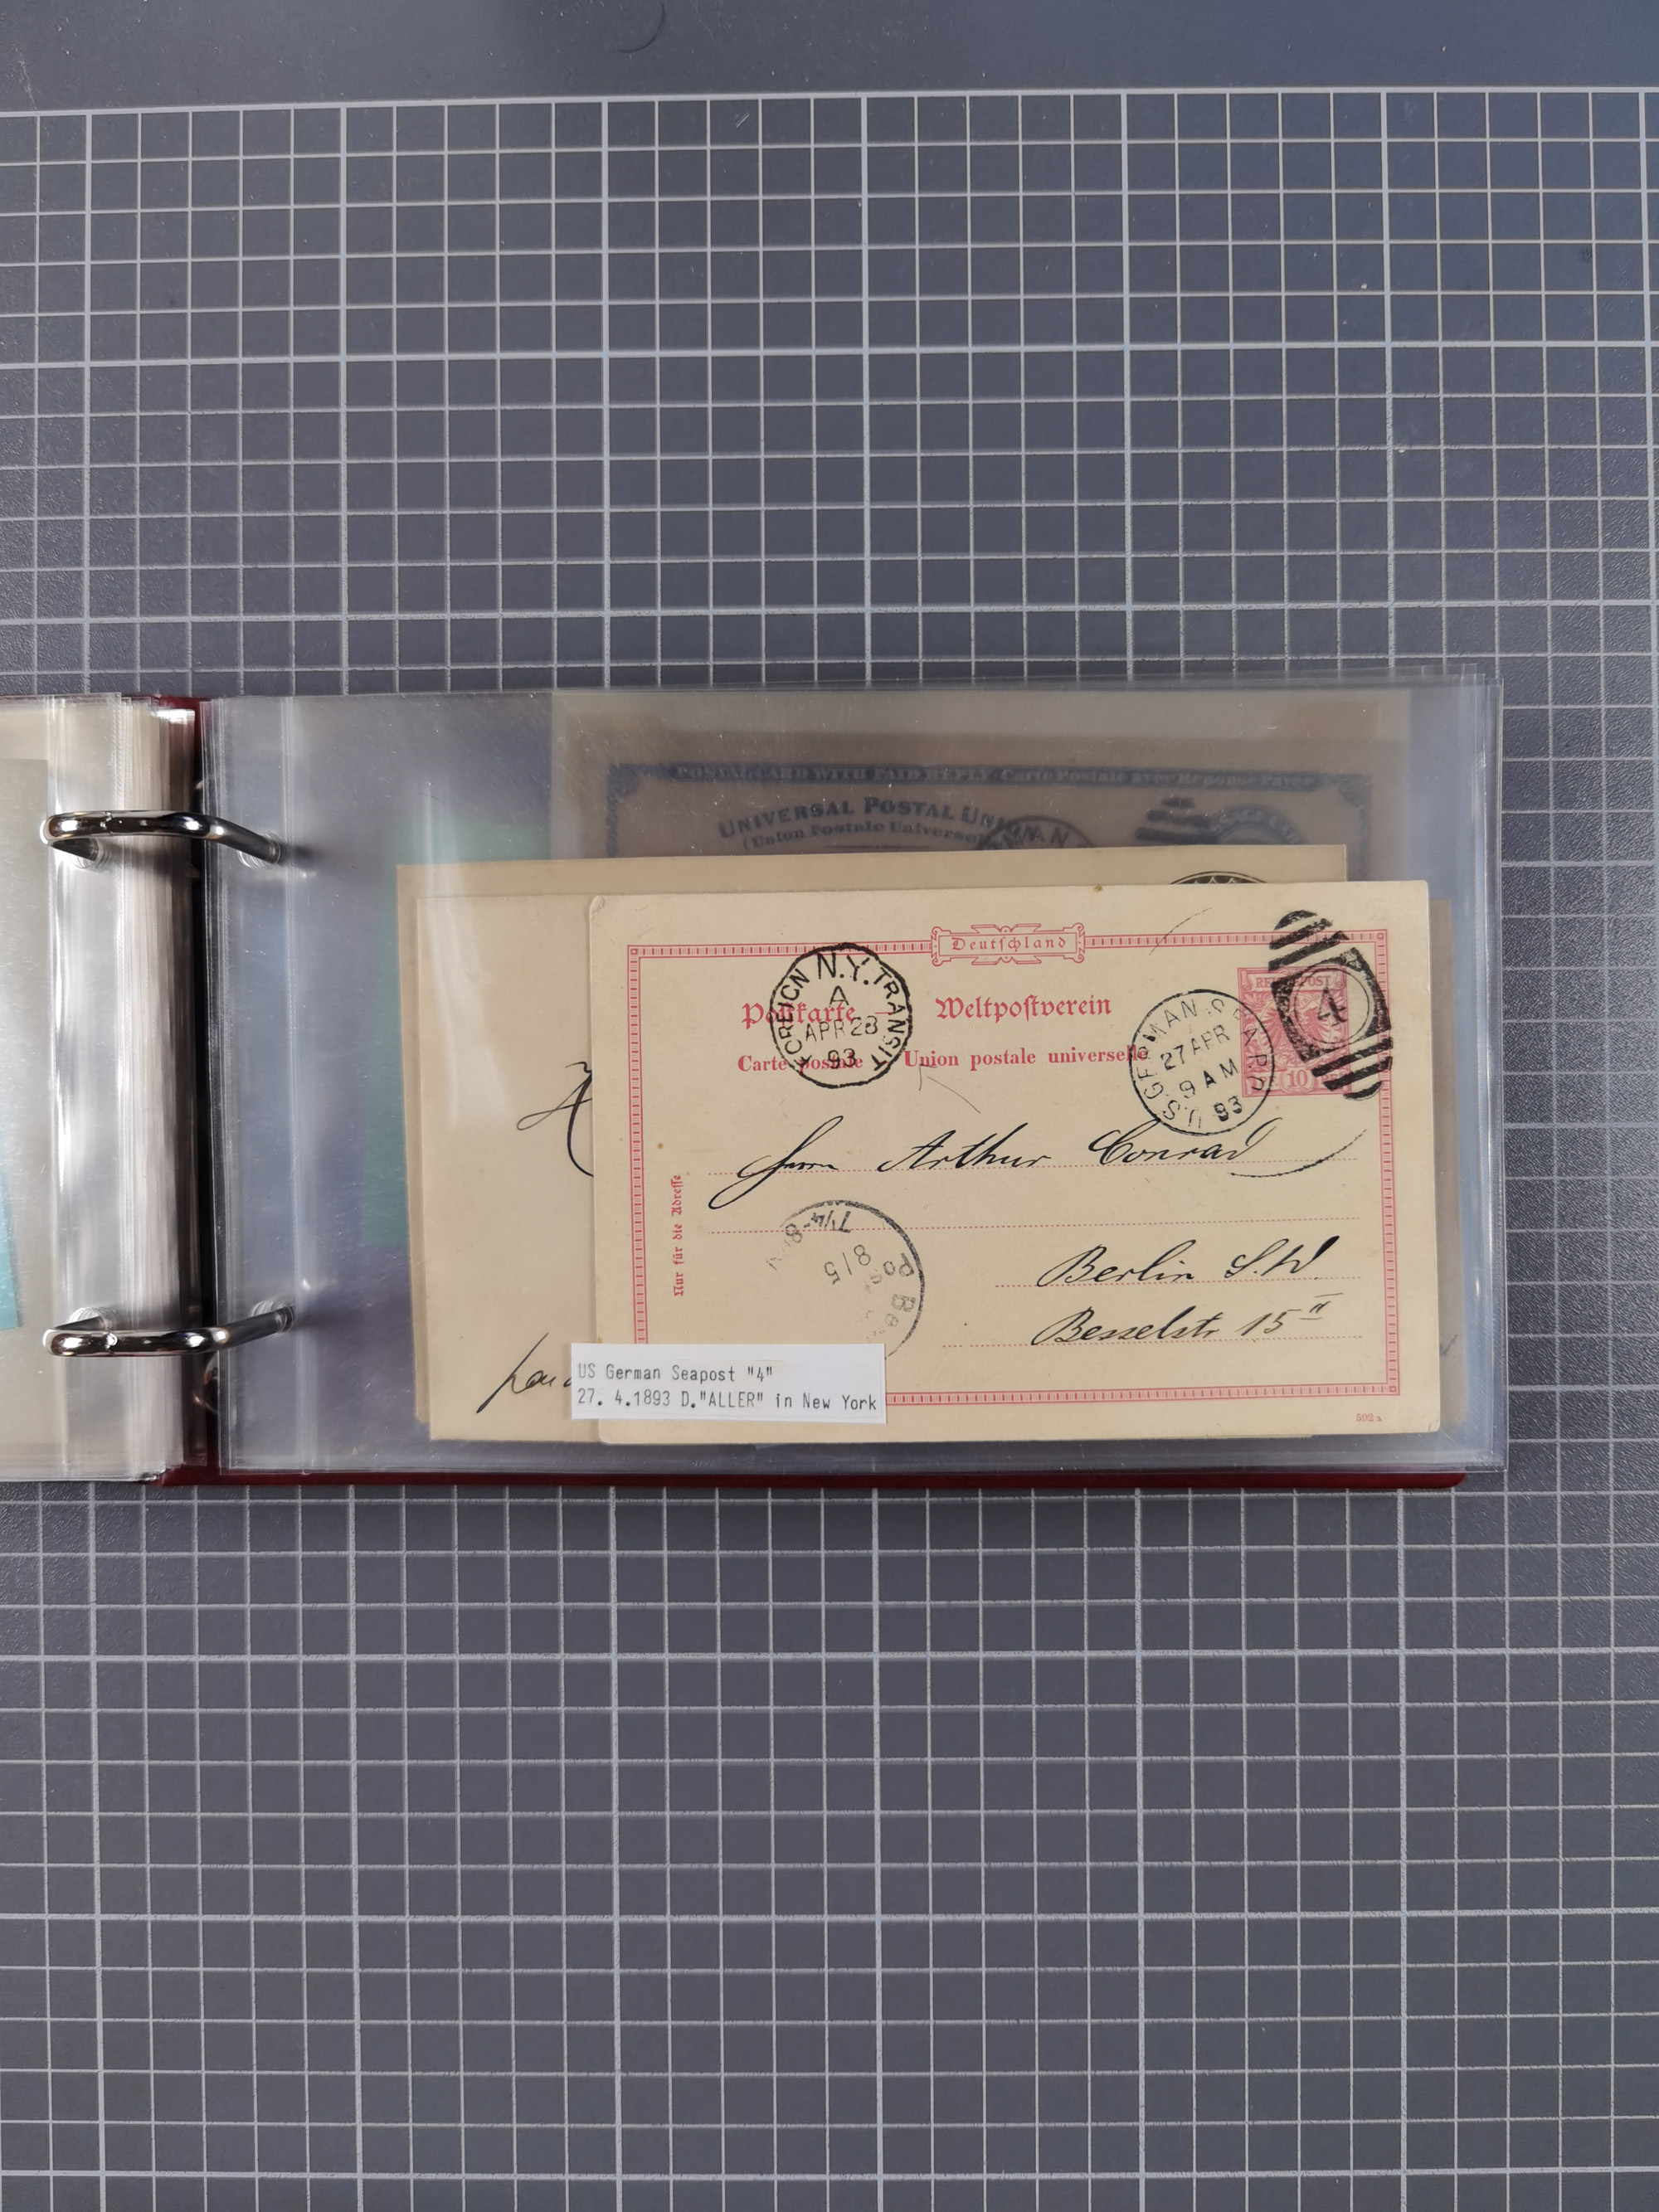 POSTAL CARD WITH PAID REPLY. Carte Postale avec Réponse Payée
UNIVERSAL POSTAL UNION
(Union Postale Universelle
Deutschland
Postkarte — Weltpostverein
Carte postale Union postale universelle
N.Y.
FOREIGN TRANSIT
A
APR 28
93
U.S. GERMAN SEA P.O.
27 APR
9 AM
93
4
REICHSPOST
10
Herrn Arthur Conrad
Berlin S.W.
Besselstr 15 II
Nur für die Adresse
8/5
7¼-8
592 a
US German Seapost "4"
27. 4.1893 D."ALLER" in New York